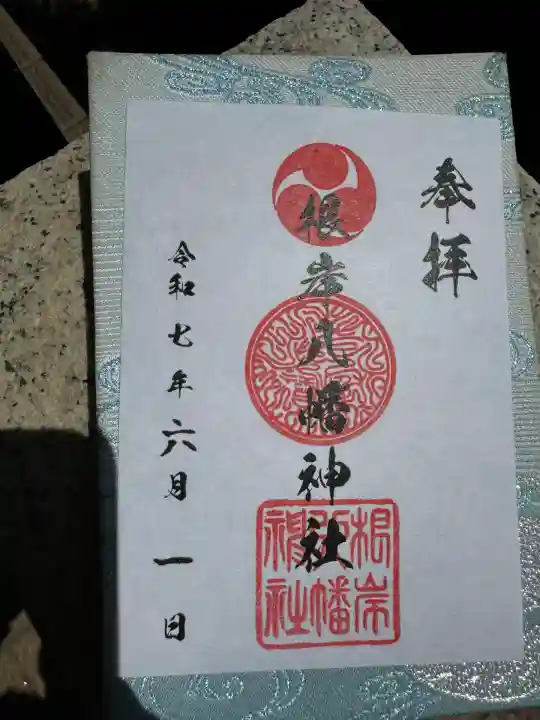 奉拝
根岸八幡神社
根岸
八幡
神社
令和七年六月一日